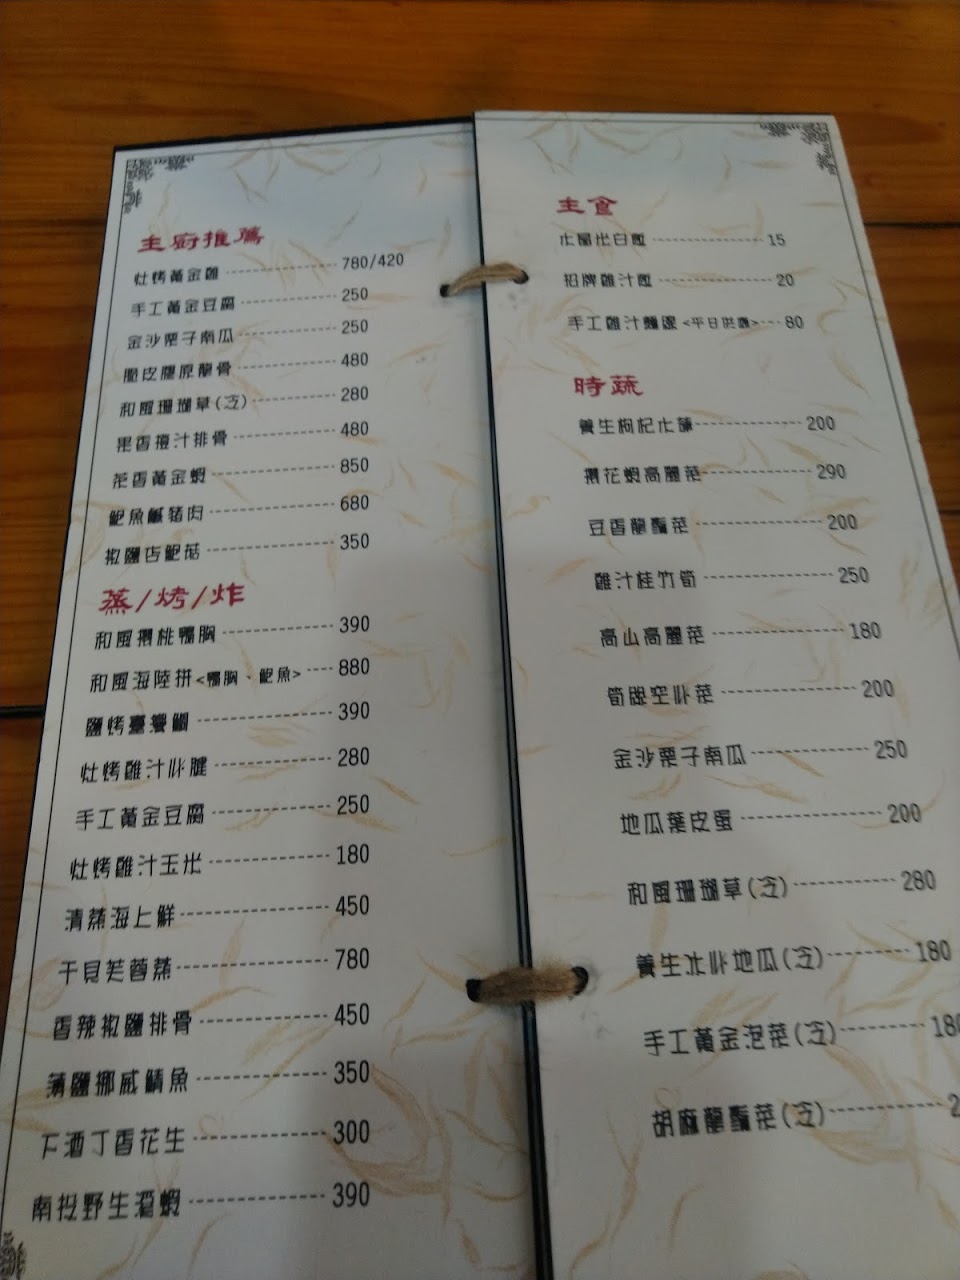 主廚推薦
灶烤黃金雞 780/420
手工黃金豆腐 250
金沙栗子南瓜 250
脆皮膠原龍骨 480
和風珊瑚草(冷) 280
果香攪汁排骨 480
茶香黃金蝦 850
鮑魚鹹豬肉 680
椒鹽杏鮑菇 350
蒸/烤/炸
和風櫻桃鴨胸 390
和風海陸拼<鴨胸、鮑魚> 880
鹽烤臺灣鯛 390
灶烤雞汁水腱 280
手工黃金豆腐 250
灶烤雞汁玉米 180
清蒸海上鮮 450
干貝芙蓉蒸 780
香辣椒鹽排骨 450
薄鹽挪威鯖魚 350
下酒丁香花生 300
南投野生酒蝦 390
主食
白飯 15
招牌雞汁飯 20
手工雞汁麵線<平日供應> 80
時蔬
養生枸杞水蓮 200
櫻花蝦高麗菜 290
豆香龍鬚菜 200
雞汁桂竹筍 250
高山高麗菜 180
空心菜 200
金沙栗子南瓜 250
地瓜葉皮蛋 200
和風珊瑚草(冷) 280
養生冰心地瓜(冷) 180
手工黃金泡菜(冷) 180
胡麻龍鬚菜(冷) 2